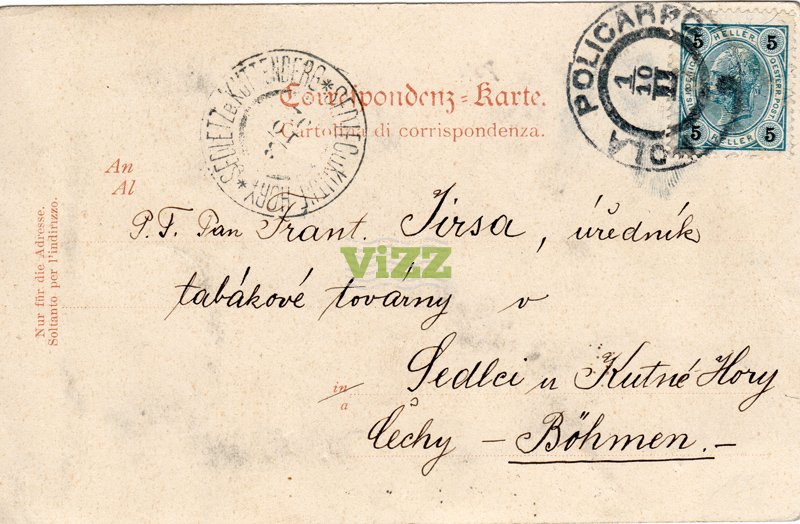 Correspondenz-Karte.
Cartolina di corrispondenza.
POLA POLICARPO
1
10
11
5 HELLER 5
5 HELLER 5
OESTERR. POST
SEDLETZ b. KUTTENBERG * SEDLEC u KUTNÉ HORY *
An
Al
P. T. Pan Frant. Jirsa, úředník
tabákové továrny v
in
a
Sedlci u Kutné Hory
Čechy – Böhmen.–
Nur für die Adresse.
Soltanto per l'indirizzo.
ViZZ